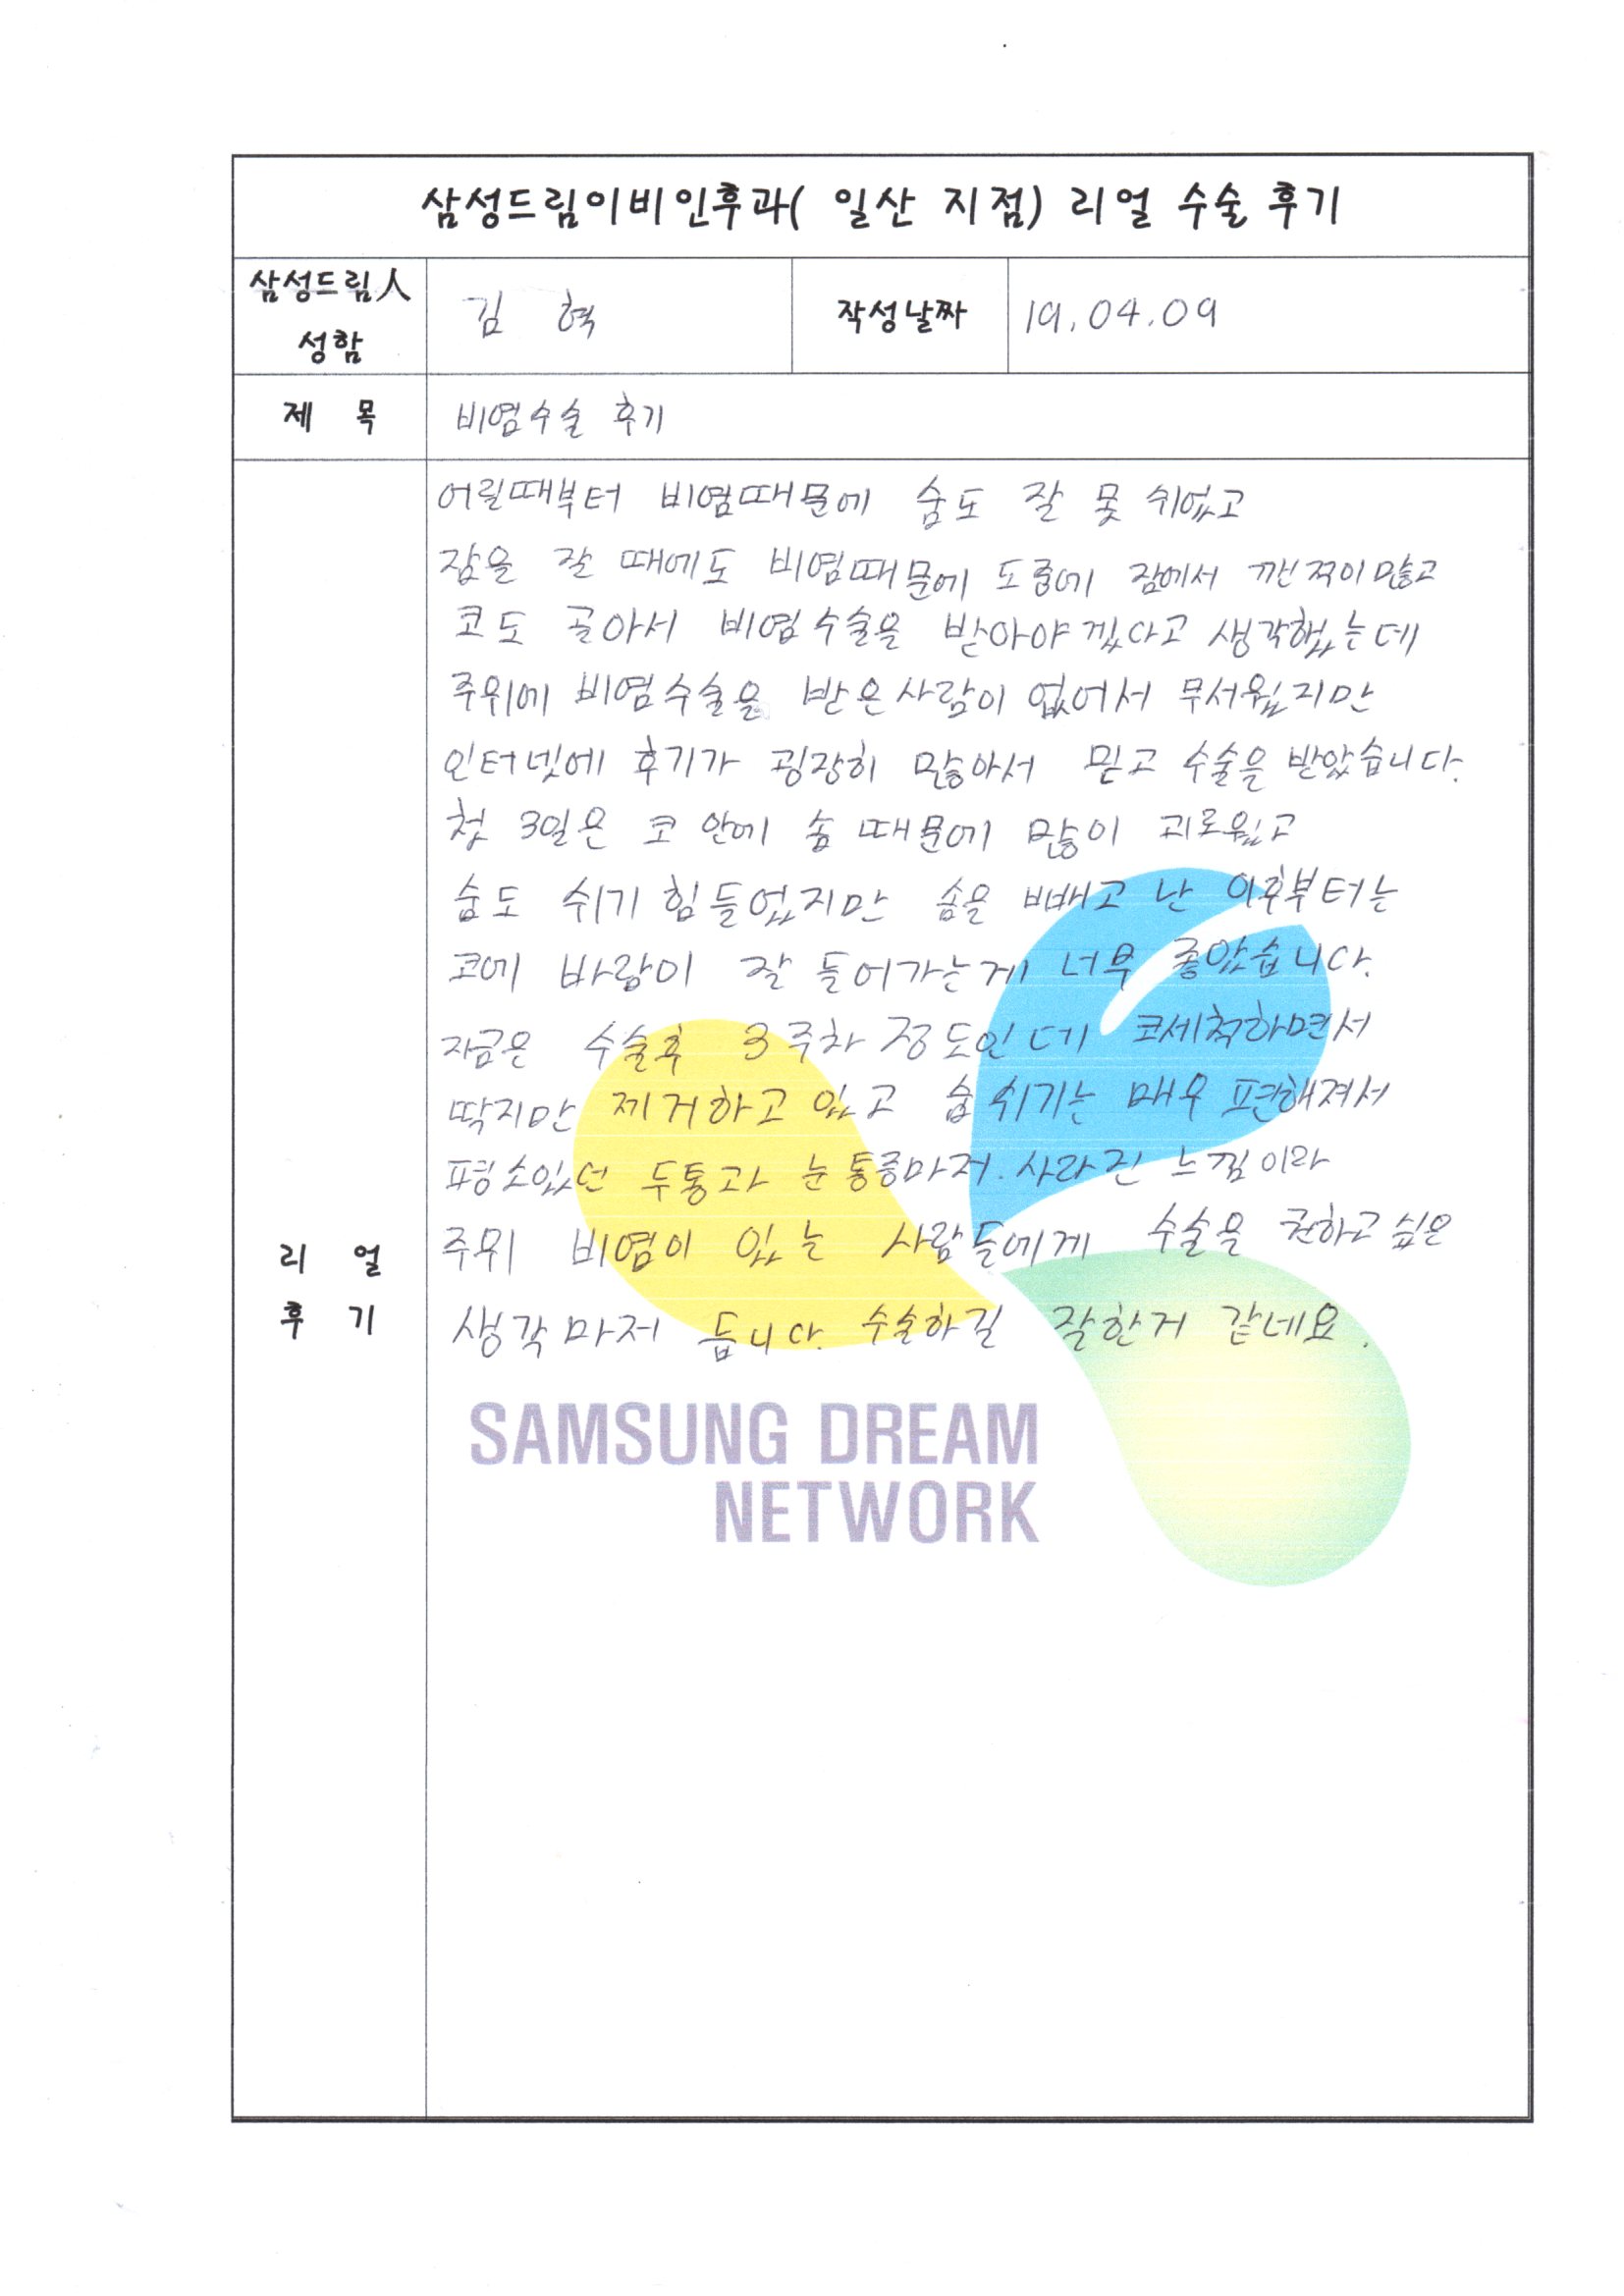 삼성드림이비인후과( 일산 지점) 리얼 수술 후기
삼성드림人 성함
김 혁
작성날짜
19.04.09
제 목
비염수술 후기
리 얼 후 기
어릴때부터 비염때문에 숨도 잘 못 쉬었고
잠을 잘 때에도 비염때문에 도중에 잠에서 깬적이많고
코도 골아서 비염수술을 받아야겠다고 생각했는데
주위에 비염수술을 받은사람이 없어서 무서웠지만
인터넷에 후기가 굉장히 많아서 믿고 수술을 받았습니다.
첫 3일은 코 안에 솜 때문에 많이 괴로웠고
숨도 쉬기 힘들었지만 솜을 빼고 난 이후부터는
코에 바람이 잘 들어가는게 너무 좋았습니다.
지금은 수술후 3주차 정도인데 코세척하면서
딱지만 제거하고 있고 숨쉬기는 매우 편해져서
평소있던 두통과 눈통증마저.사라진 느낌이라
주위 비염이 있는 사람들에게 수술을 권하고싶은
생각마저 듭니다. 수술하길 잘한거 같네요.
SAMSUNG DREAM
NETWORK